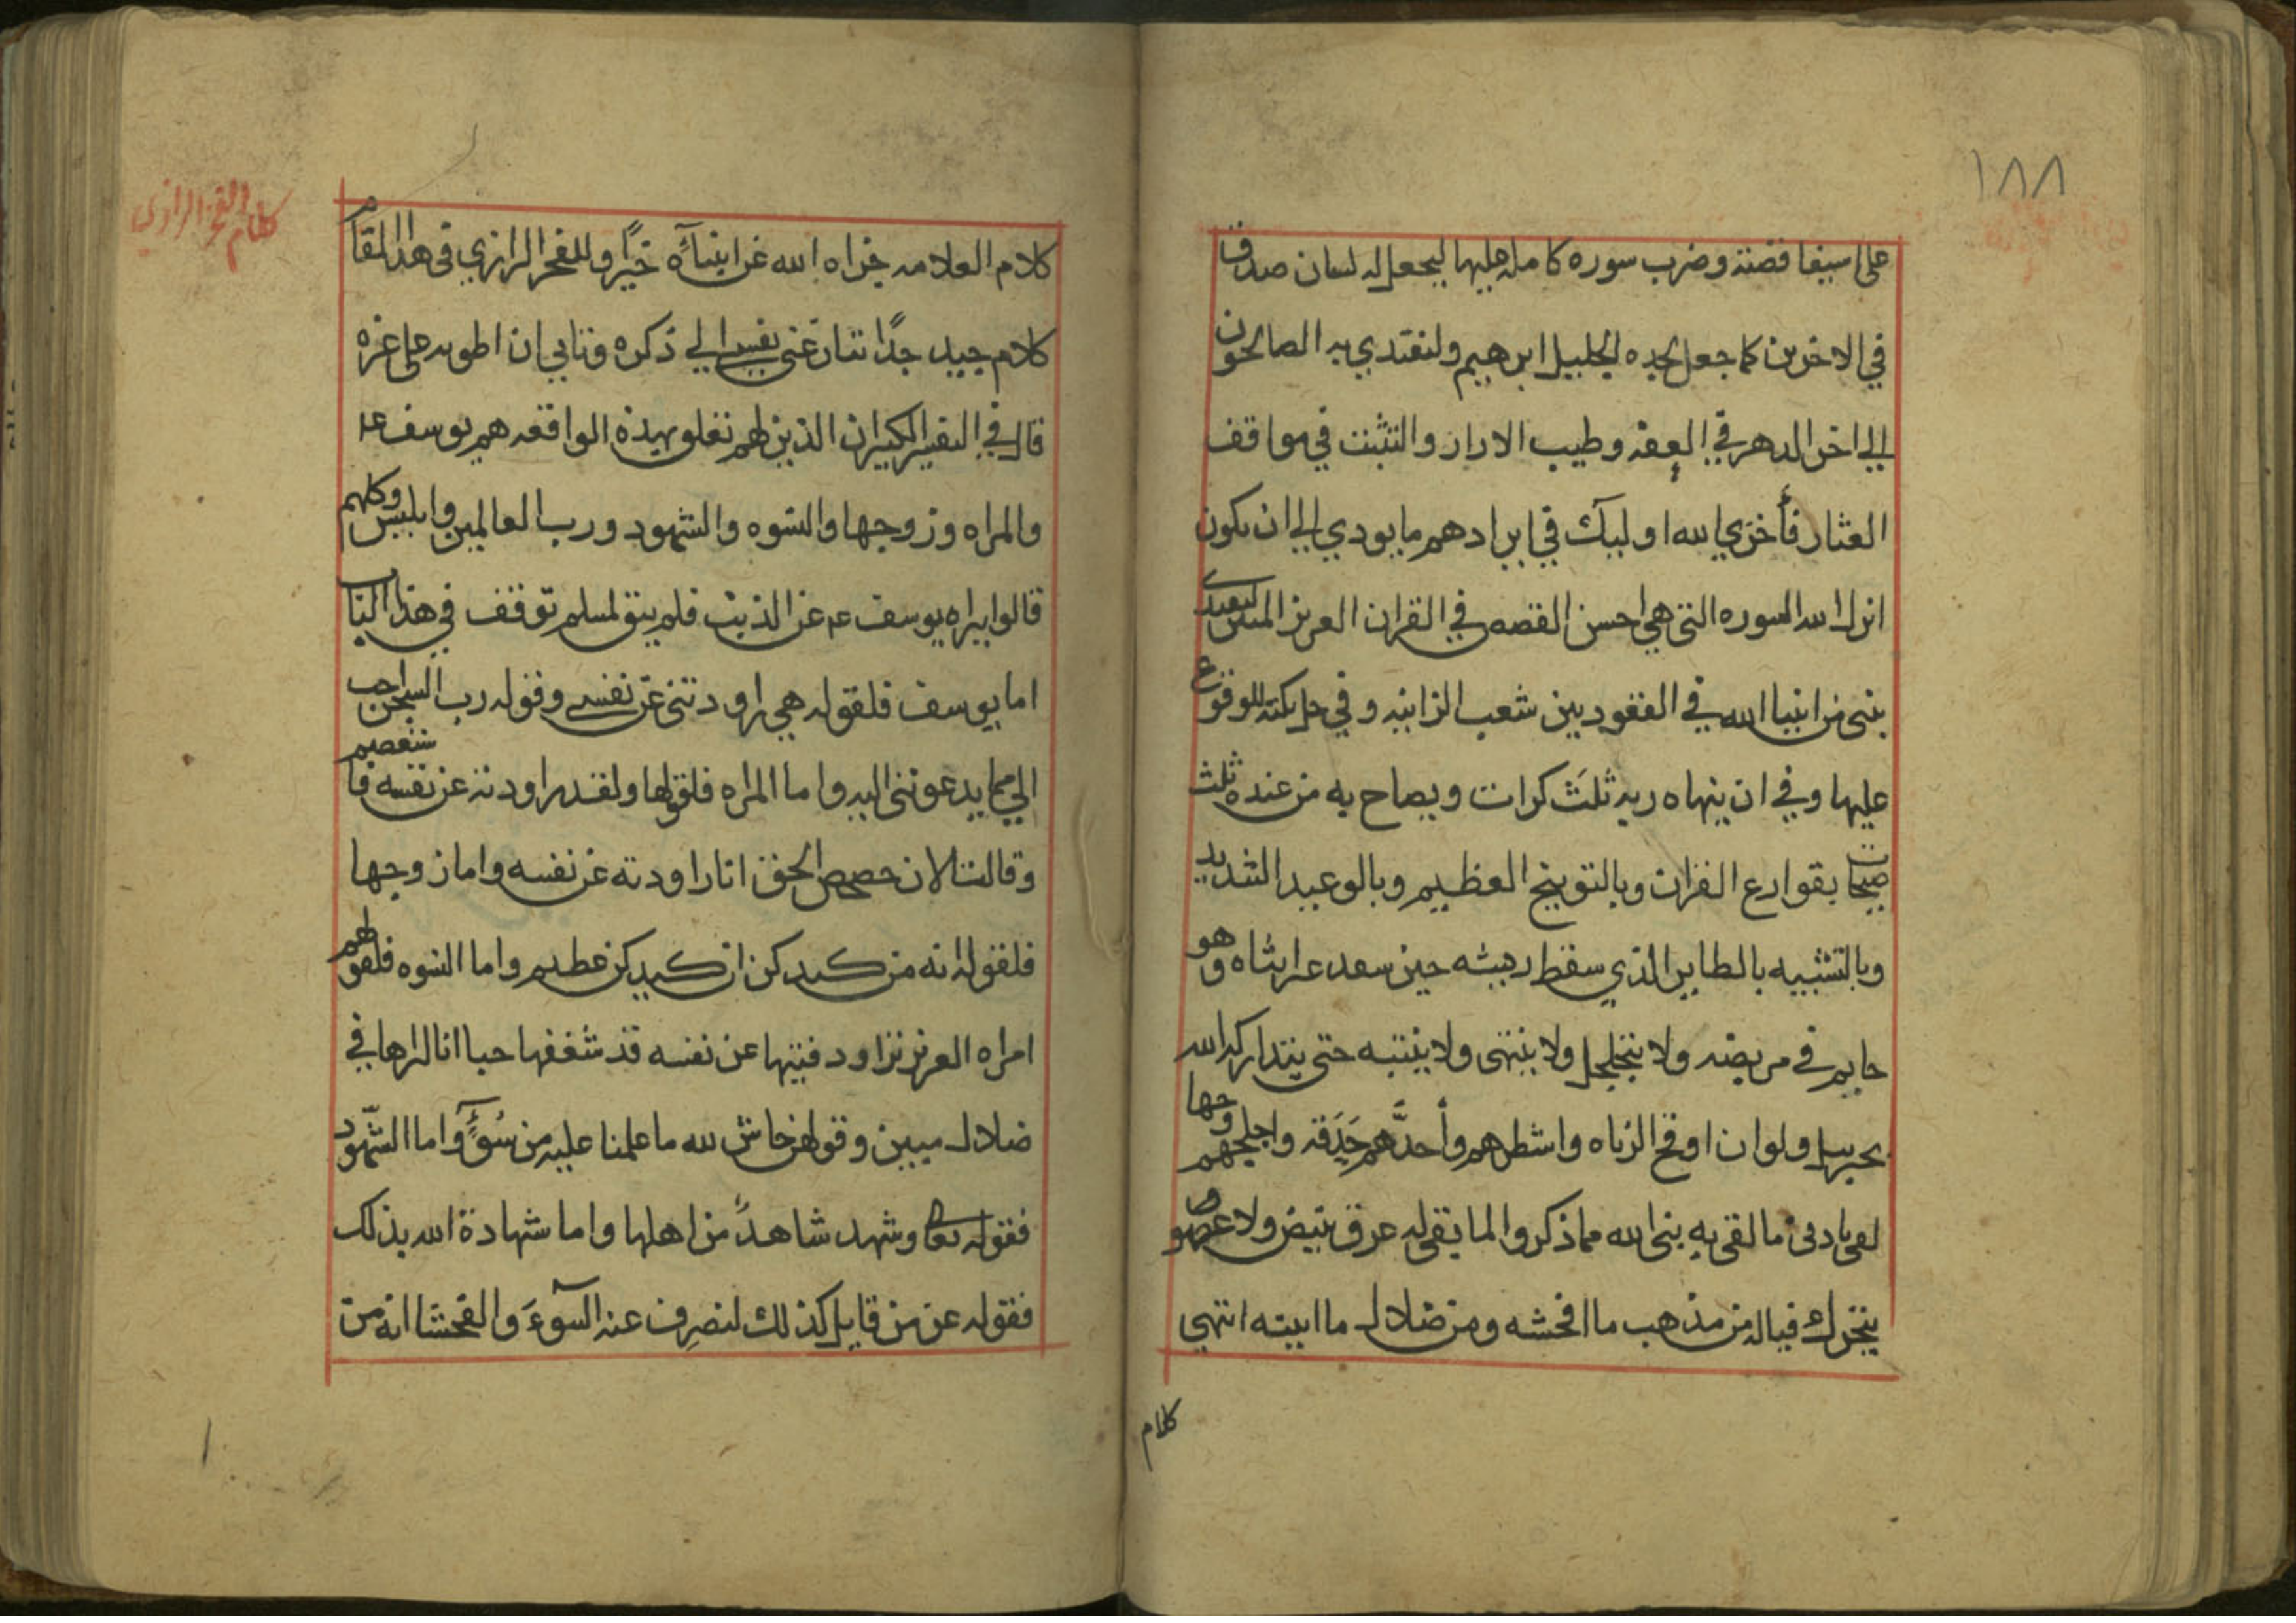 ١٨٨
على استيفا قصته وضرب سوره كامله عليها ليجعل له لسان صدق
في الاخرين كما جعل لجده الخليل ابرهيم ولنقتدي به الصالحون
الي اخر الدهر في العفه وطيب الازار والتثبت في مواقف
العثار فأخزي الله اوليك في ايرادهم ما يودي الي ان يكون
انزل الله السوره التي هي احسن القصص في القران العزيز ليقتدي
بنبى من انبيا الله في القعود بين شعب الزانيه وفي حل تكته للوقوع
عليها وفي ان ينهاه ربه ثلَث كرات ويصاح به من عنده ثلث
صيحات بقوارع القران وبالتوبيخ العظيم وبالوعيد الشديد
وبالتشبيه بالطاير الذي سقط ريشه حين سفد غير انثاه وهو
جاثم في مربضه ولا يتحلحل ولا ينتهى ولا ينتبه حتى يتداركه الله
بجبريل ولو ان اوقح الزناه واشطرهم وأحدَّهم حَدَقه واجلحهم وجها
لقى بادنى ما لقى به نبى الله مما ذكروا لما بقى له عرق ينبض ولا عضو
يتحرك فياله من مذهب ما افحشه ومن ضلال ما ابينه انتهي
كلام
كلام الفخر الرازي
كلام العلامه جزاه الله عن انبيآئه خيرًا وللفخر الرازي في هذا المقام
كلام جيد جدًا تنازعنى نفسي الي ذكره وتابي ان اطويه على غره
قال في التفسير الكبير ان الذين لهم تعلق بهذه الواقعه هم يوسف عم
والمراه وزوجها والنسوه والشهود ورب العالمين وابليس وكلهم
قالوا ببراه يوسف عم عن الذنب فلم يبق لمسلم توقف في هذا الباب
اما يوسف فلقوله هي راودتني عن نفسي وقوله رب السجن احب
الي مما يدعونني اليه واما المراه فلقولها ولقد راودته عن نفسه فاستعصم
وقالت الان حصحص الحق انا راودته عن نفسه واما زوجها
فلقوله انه من كيدكن ان كيدكن عظيم واما النسوه فلقولهم
امراه العزيز تراود فتيها عن نفسه قد شغفها حبا انا لنراها في
ضلال مبين وقولهن حاش لله ما علمنا عليه من سُوٓءٍ واما الشّهود
فقوله تعالى وشهد شاهدٌ من اهلها واما شهادة الله بذلك
فقوله عز من قايل كذلك لنصرِف عنه السّوٓءَ والفحشا انه من